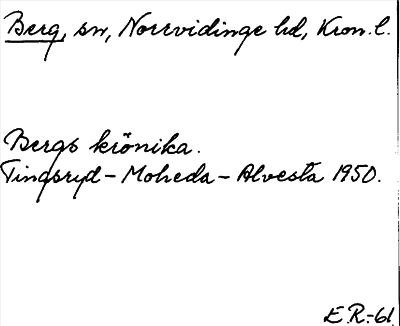 Berg, sn, Norrvidinge hd, Kron. l.
Bergs krönika.
Tingsryd - Moheda - Alvesta 1950.
E.R.-61.